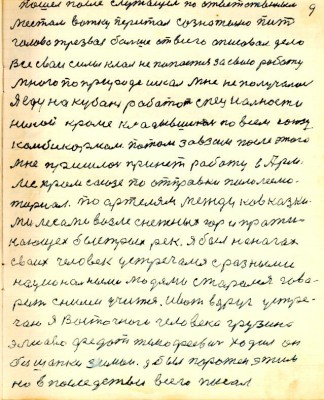 9
Пошел после служащим по ответственным
местам водку перестал сознательно пить
голова трезвая больше от всего описовал дело
Все сваи силы клал на
много по природе писал мне не получалос
Я еду на кубань работою специалности
никой кроме кладывшиком по всем союз
комбикормам. потом завязам после этого
мне пришлос принет работу в Арм.
лесхром союзе по отправки пилолесмо.
териал. по артелям между ковказки-
ми лесами возле снежных гор и прати-
кающех быстрых рек. я был на ногах
сваих человек устречался с разными
национальными людями старался гова-
рить с ними учится. и вот вдруг устре-
чаю я Восточного человека грузина
федот тимофеевич ходил он
без шапки зимой. я был поражен этим
но в последствии всего писал